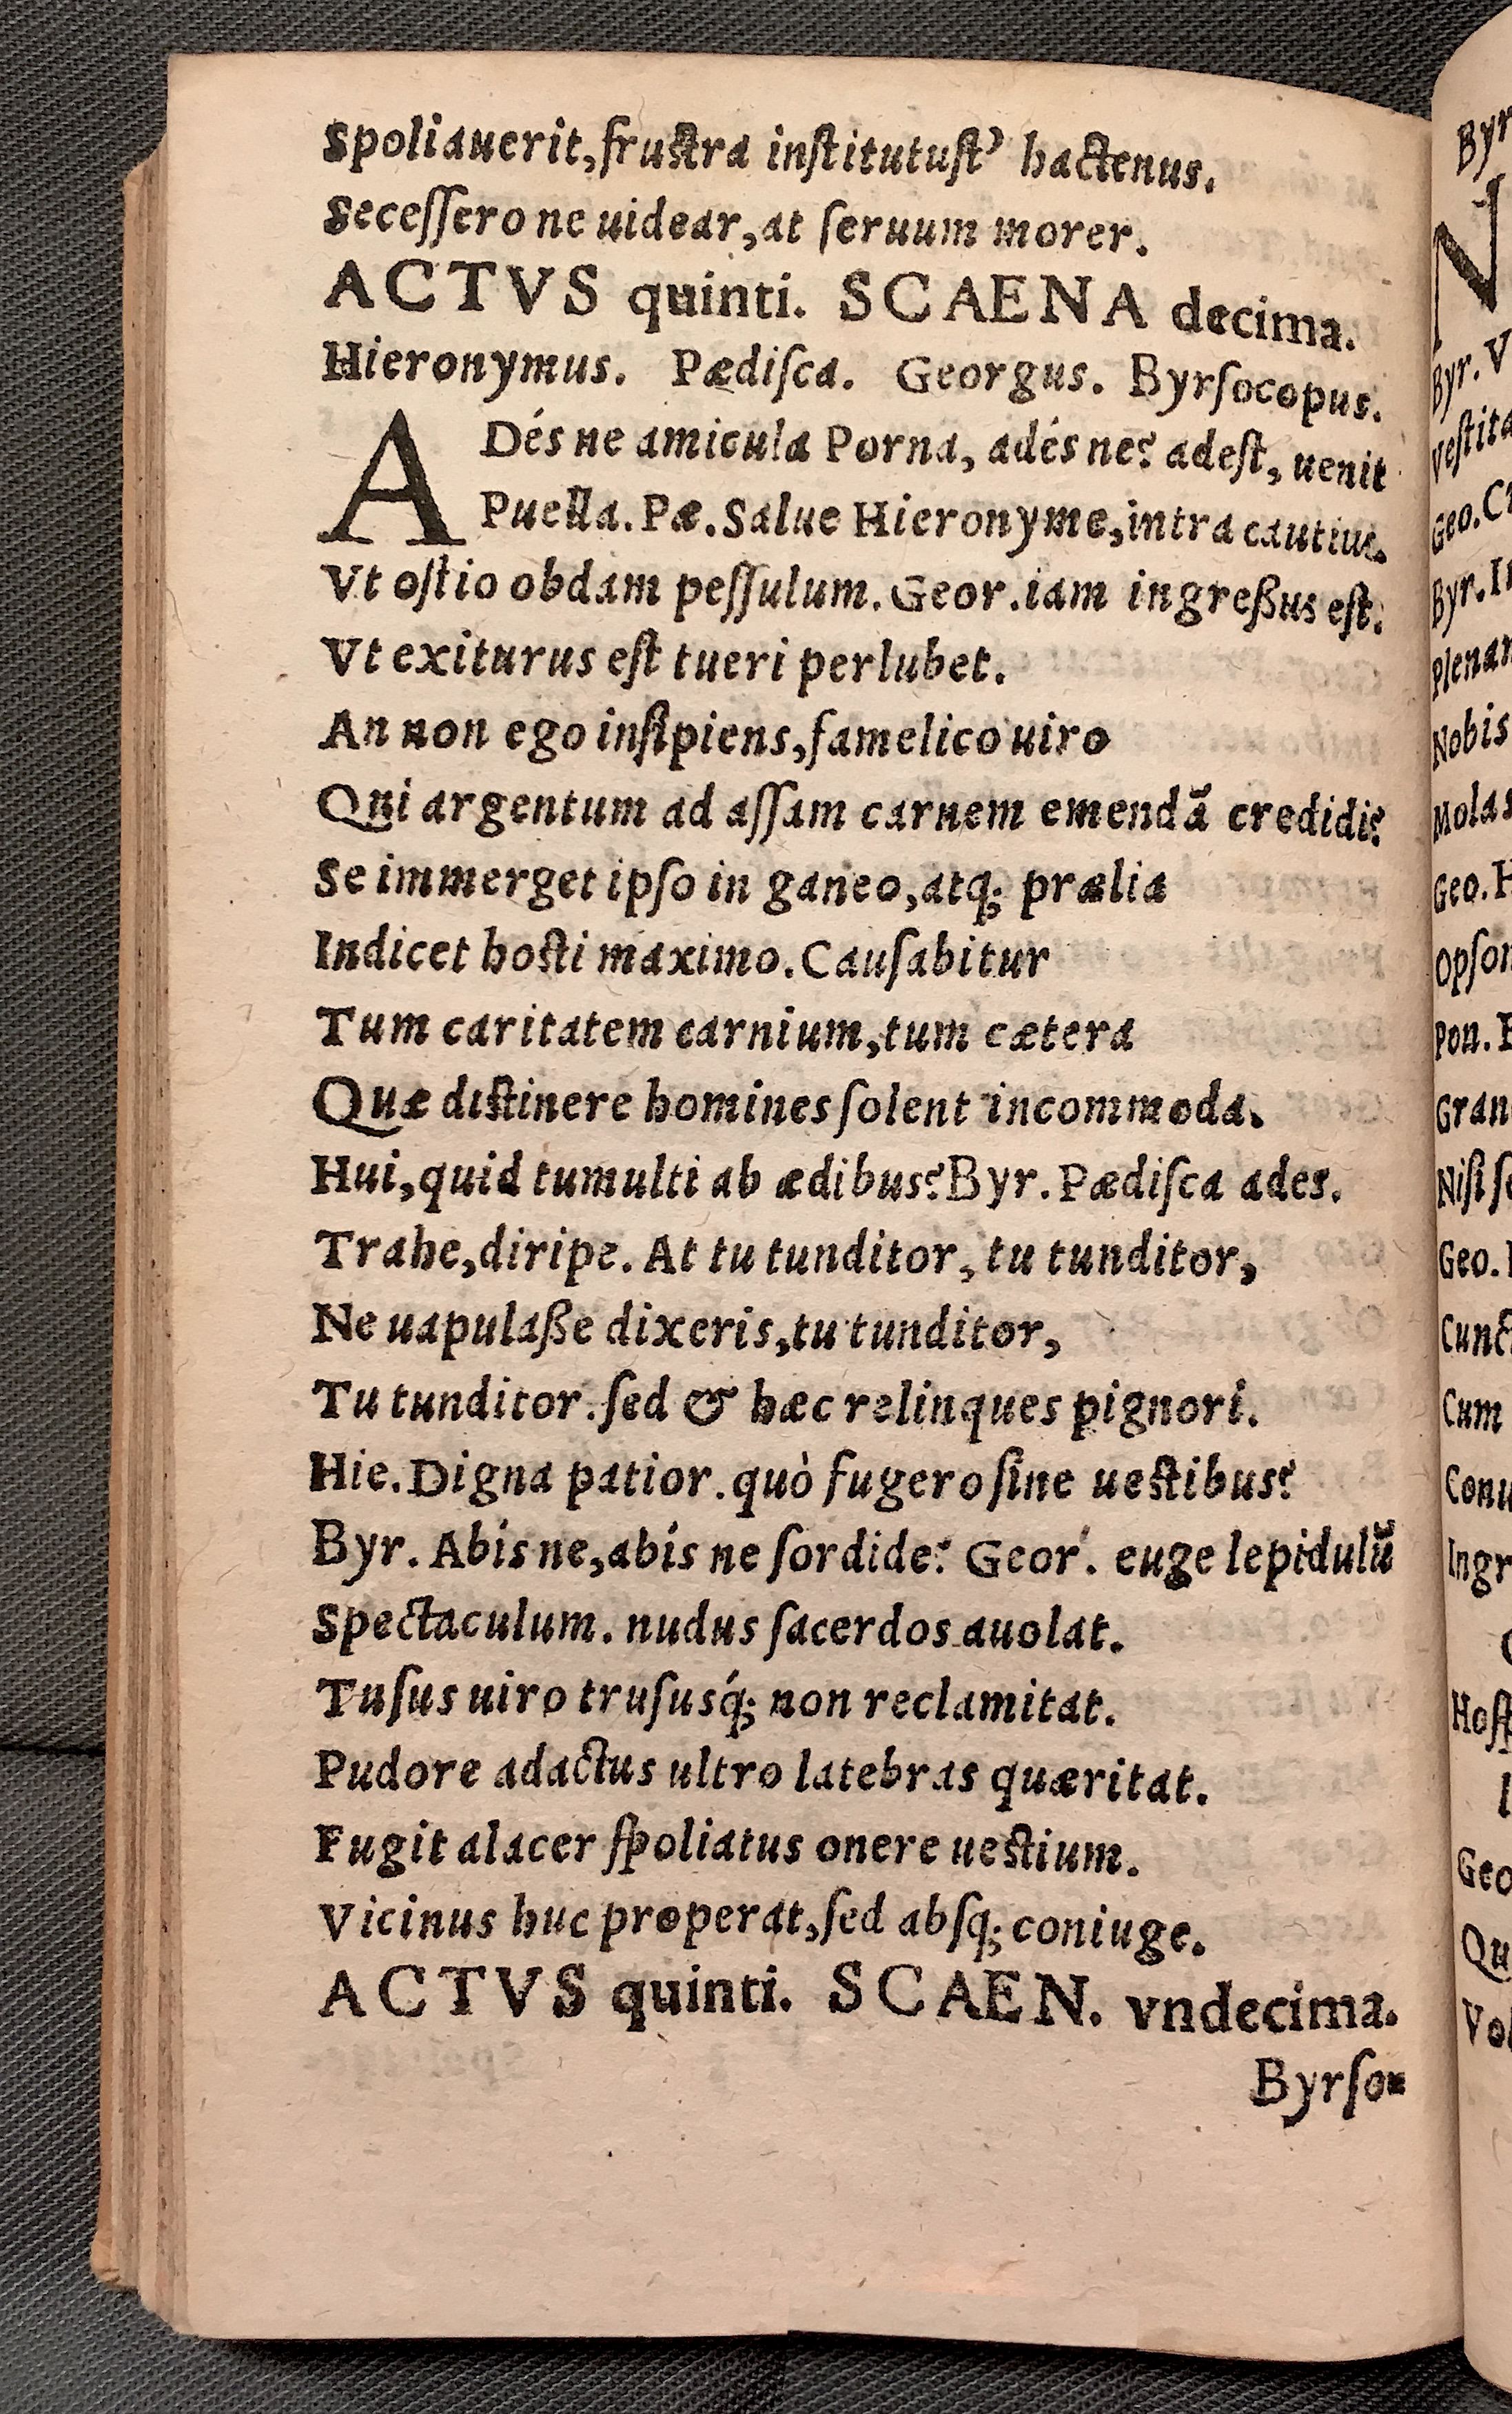 Spoliauerit, fruſtra inſtitutuſt' hactenus.
Seceſſero ne uidear, at ſeruum morer.
ACTVS quinti. SCAENA decima.
Hieronymus. Pædiſca. Georgus. Byrſocopus.
ADés ne amicula Porna, adés ne? adeſt, uenit
Puella. Pæ. Salue Hieronyme, intra cautius.
Vt oſtio obdam peſſulum. Geor. iam ingreßus eſt:
Vt exiturus eſt tueri perlubet.
An non ego inſipiens, famelico uiro
Qui argentum ad aſſam carnem emendã credidi?
Se immerget ipſo in ganeo, atq; prælia
Indicet hoſti maximo. Cauſabitur
Tum caritatem carnium, tum cætera
Quæ diſtinere homines ſolent incommoda.
Hui, quid tumulti ab ædibus? Byr. Pædiſca ades.
Trahe, diripe. At tu tunditor, tu tunditor,
Ne uapulaße dixeris, tu tunditor,
Tu tunditor. ſed & hæc relinques pignori.
Hie. Digna patior. quò fugero ſine ueſtibus?
Byr. Abís ne, abís ne ſordide? Geor. euge lepidulũ
Spectaculum. nudus ſacerdos auolat.
Tuſus uiro truſusq́; non reclamitat.
Pudore adactus ultro latebras quæritat.
Fugit alacer ſpoliatus onere ueſtium.
Vicinus huc properat, ſed abſq; coniuge.
ACTVS quinti. SCAEN. vndecima.
Byrſo-
Byr
N
Byr. V
Geo. C
Byr. I
Nobis
Molas
Geo. H
Pon. E
Gran
Niſi ſe
Geo.
Cum
Geo
Qu